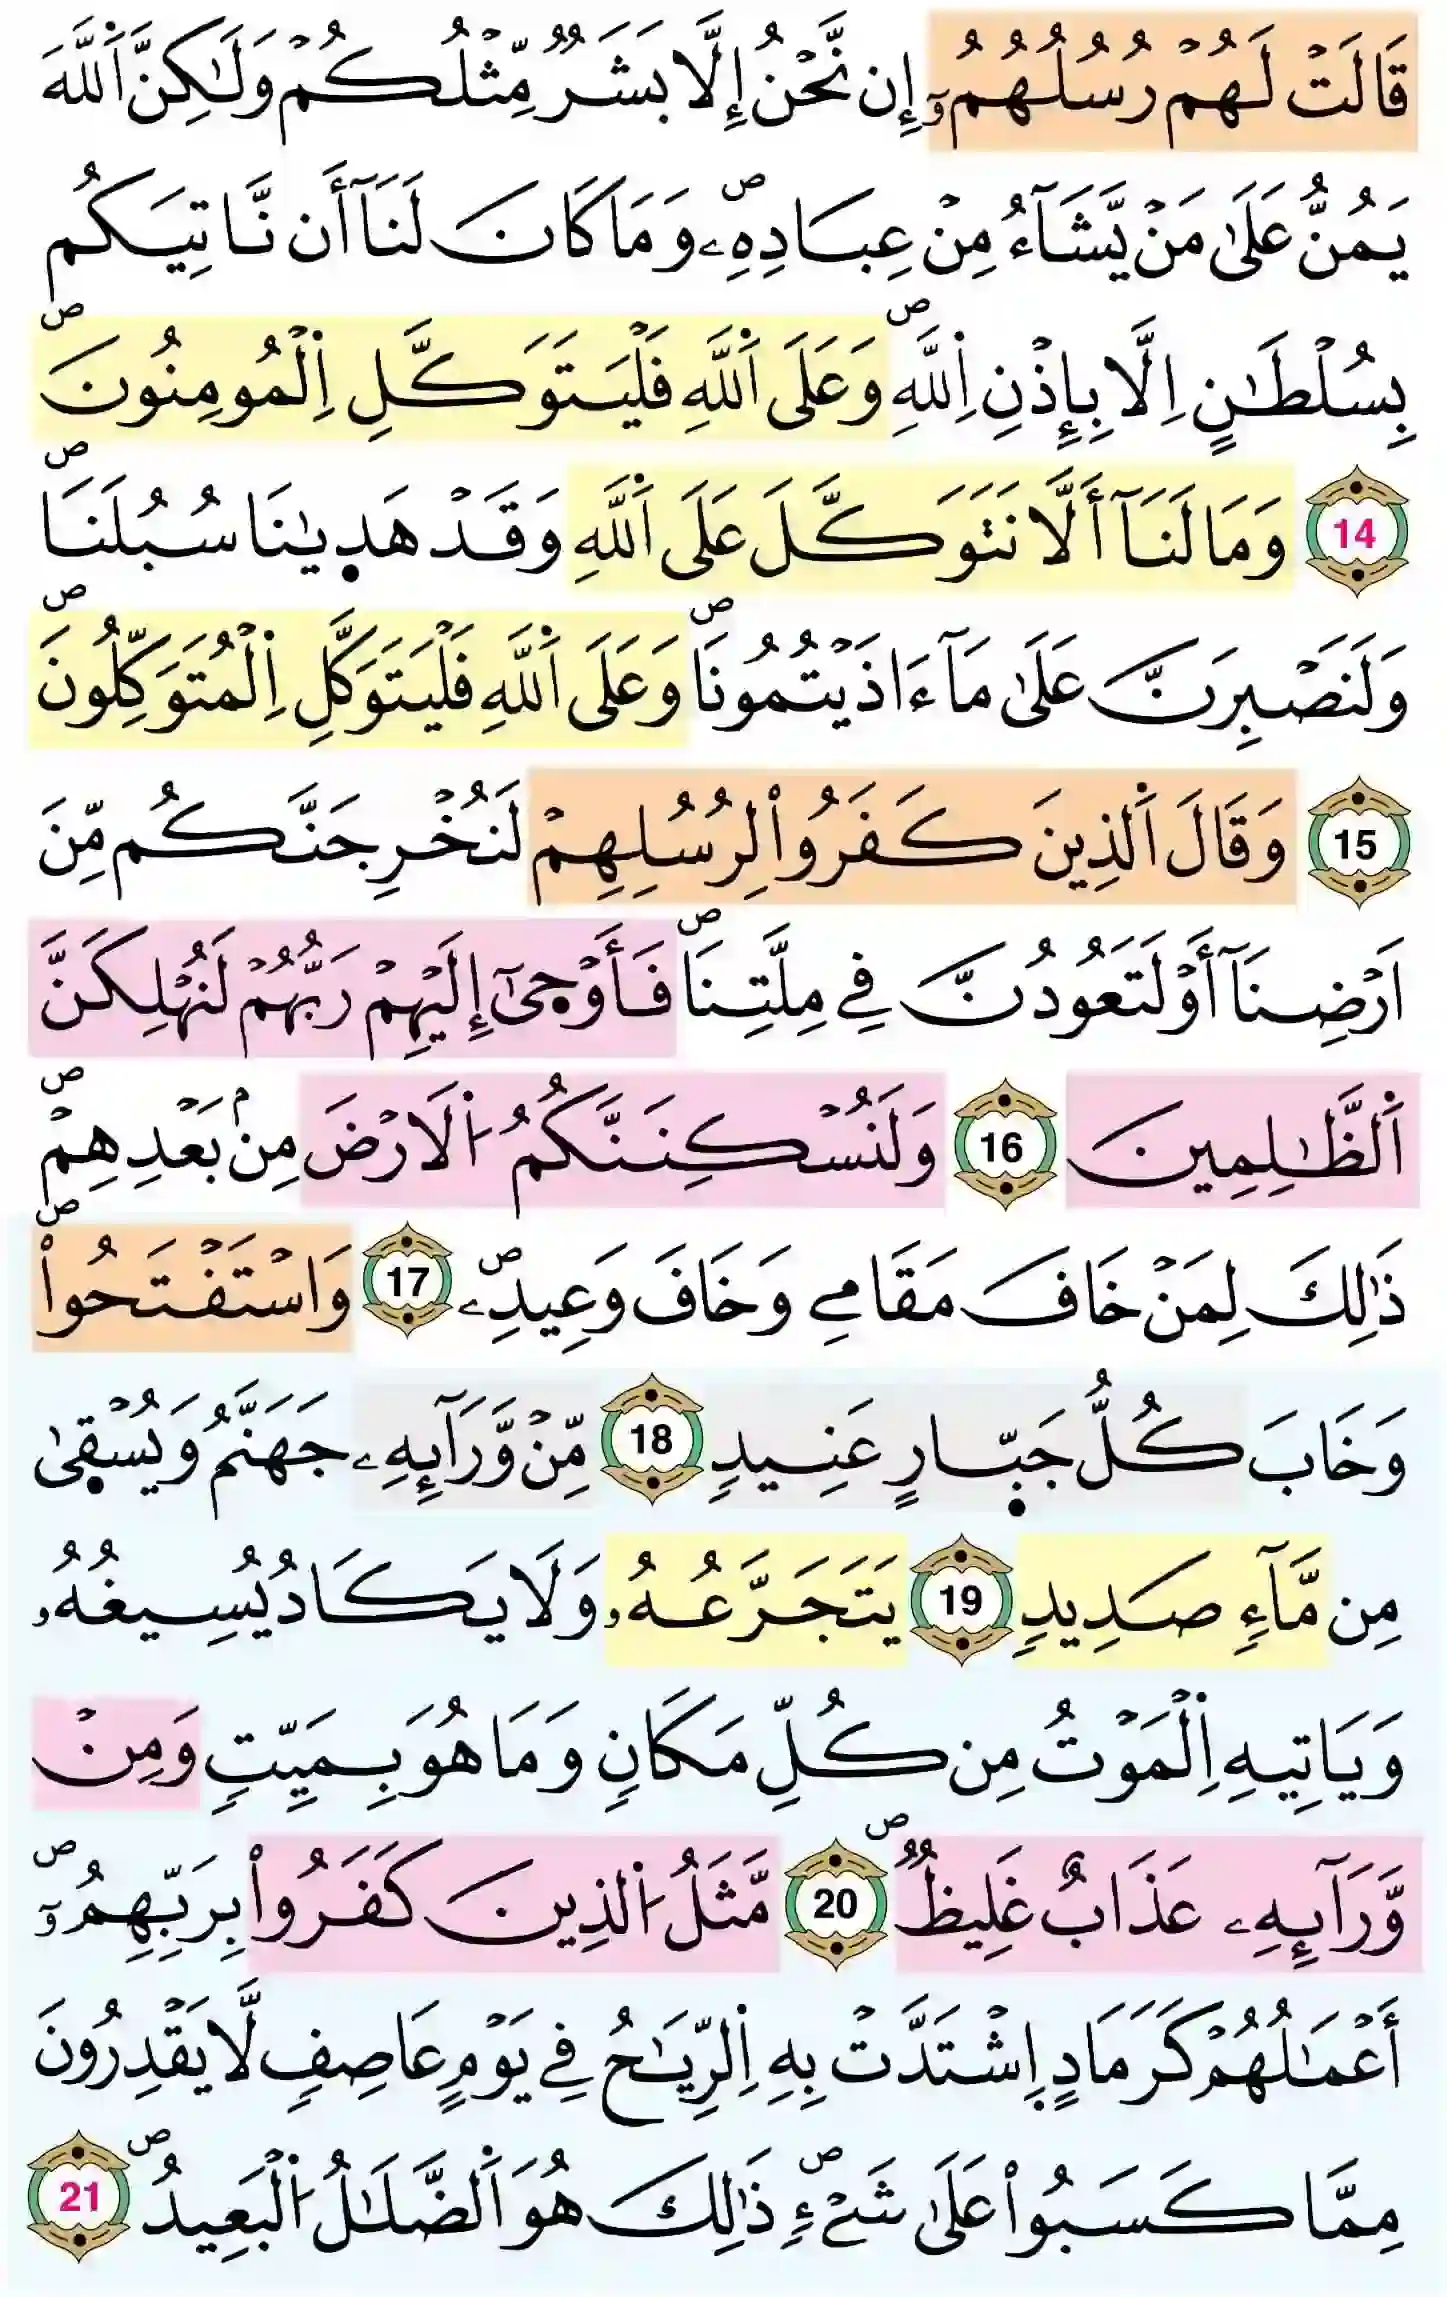 قَالَتْ لَهُمْ رُسُلُهُمُۥٓ إِن نَّحْنُ إِلَّا بَشَرٌ مِّثْلُكُمْ وَلَٰكِنَّ اَ۬للَّهَ
يَمُنُّ عَلَىٰ مَنْ يَّشَآءُ مِنْ عِبَادِهِۦۖ وَمَا كَانَ لَنَآ أَن نَّاتِيَكُم
بِسُلْطَٰنٍ اِلَّا بِإِذْنِ اِ۬للَّهِۖ وَعَلَى اَ۬للَّهِ فَلْيَتَوَكَّلِ اِ۬لْمُومِنُونَۖ
14 وَمَا لَنَآ أَلَّا نَتَوَكَّلَ عَلَى اَ۬للَّهِ وَقَدْ هَدٜىٰنَا سُبُلَنَاۖ
وَلَنَصْبِرَنَّ عَلَىٰ مَآ ءَاذَيْتُمُونَاۖ وَعَلَى اَ۬للَّهِ فَلْيَتَوَكَّلِ اِ۬لْمُتَوَكِّلُونَۖ
15 وَقَالَ اَ۬لذِينَ كَفَرُواْ لِرُسُلِهِمْ لَنُخْرِجَنَّكُم مِّنَ
اَرْضِنَآ أَوْ لَتَعُودُنَّ فِے مِلَّتِنَاۖ فَأَوْحٜىٰٓ إِلَيْهِمْ رَبُّهُمْ لَنُهْلِكَنَّ
اَ۬لظَّٰلِمِينَ 16 وَلَنُسْكِنَنَّكُمُ اُ۬لَارْضَ مِنۢ بَعْدِهِمْۖ
ذَٰلِكَ لِمَنْ خَافَ مَقَامِے وَخَافَ وَعِيدِۦۖ 17 وَاسْتَفْتَحُواْۖ
وَخَابَ كُلُّ جَبّٜارٍ عَنِيدٍ 18 مِّنْ وَّرَآئِهِۦ جَهَنَّمُ وَيُسْقٜىٰ
مِن مَّآءٍ صَدِيدٍ 19 يَتَجَرَّعُهُۥ وَلَا يَكَادُ يُسِيغُهُۥ
وَيَاتِيهِ اِ۬لْمَوْتُ مِن كُلِّ مَكَانٍ وَمَا هُوَ بِمَيِّتٍ وَمِنْ
وَّرَآئِهِۦ عَذَابٌ غَلِيظٌۖ 20 مَّثَلُ اُ۬لذِينَ كَفَرُواْ بِرَبِّهِمُۥٓۖ
أَعْمَٰلُهُمْ كَرَمَادٍ اِ۪شْتَدَّتْ بِهِ اِ۬لرِّيَٰحُ فِے يَوْمٍ عَاصِفٍ لَّا يَقْدِرُونَ
مِمَّا كَسَبُواْ عَلَىٰ شَےْءٍۖ ذَٰلِكَ هُوَ اَ۬لضَّلَٰلُ اُ۬لْبَعِيدُۖ 21